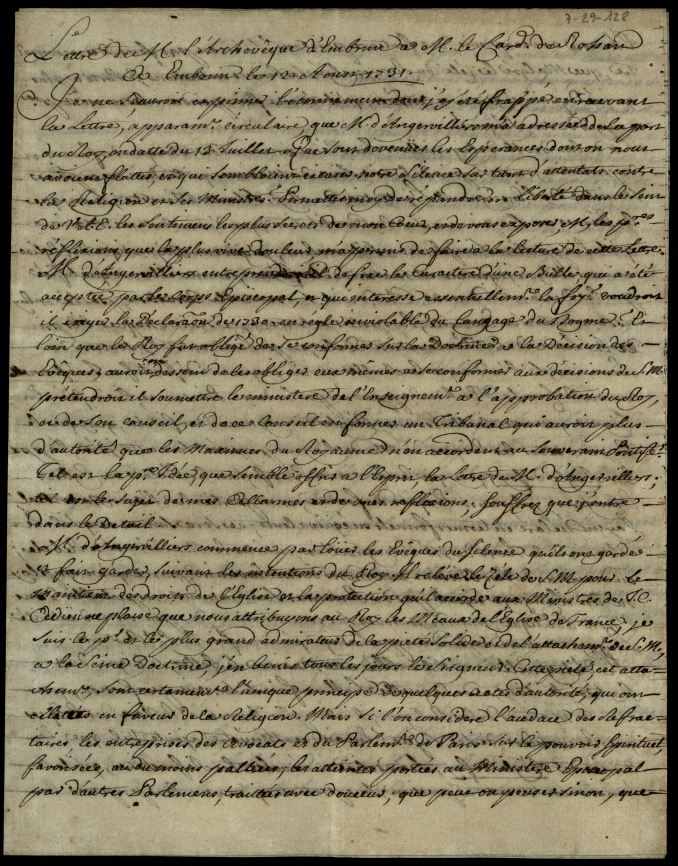 7-29-128
Lettre de M. l'Archevêque d'Embrun à M. le Card. de Rohan
A Embrun le 12 Aoust 1731.
Je ne sçaurois exprimer l'étonnement dont j'ay été frappé en recevant
la Lettre, apparam.t circulaire, que M. d'Angervilliers m'a adressée de la part
du Roy, en datte du 22 Juillet. Que sont devenües les Esperances dont on nous
avoit flattés, et qui sembloient excuser notre silence sur tant d'attentats contre
la Religion et ses Ministres. Permettes moy de répandre en Liberté dans le Sein
de V. A. E. les Sentimens les plus secrets de mon Coeur, et de vous exposer M. les p.res
réflexions, que la plus vive douleur m'a permis de faire à la lecture de cette Lettre
M. d'Angervilliers entreprend-il de fixer le Caractere d'une Bulle qui a été
acceptée par le Corps Episcopal, et qui interesse essentiellem.t la foy? voudroit
il eriger la Déclaraon de 1730 en régle inviolable du Langage du Dogme? Et
loin que le Roy fut obligé de se conformer sur la Doctrine à la Décision des
Evêques, auroit on dessein de les obliger eux mêmes à se conformer aux décisions de S. M.
prétendroit il soumettre le ministere de l'Enseignem.t à l'approbation du Roy,
ou de son conseil, et de ce Conseil en former un Tribunal qui auroit plus
d'autorité que les Maximes du Royaume n'en accordent au Souverain Pontife?
Tel est la p.re Idée, que semble offrir à l'Esprit, la Lettre de M. d'Angervilliers;
tel est le sujet de mes Allarmes et de mes réflexions, souffrez que j'entre
dans le Détail.
M. d'Angervilliers commence par loüer les Evêques du silence qu'ils ont gardé
et fait garder, suivant les intentions du Roy. Il relève le Zele de S. M. pour le
maintien des droits de l'Eglise et la protection qu'il accorde aux Ministres de J. C.
A dieu ne plaise que nous attribuyons au Roy les Maux de l'Eglise de France; je
suis le p.r et le plus grand admirateur de la pieté solide et de l'attachem.t de S. M.
à la Saine doctrine, j'en benis tous les jours le Seigneur. Cette pieté, cet atta-
chem.t, sont certainem.t l'unique principe de quelques actes d'autorité, qui ont
éclatés en faveur de la Religion. Mais si l'on considere l'audace des Refrac-
taires, les entreprises des Avocats et du Parlem.t de Paris sur le pouvoir Spirituel,
favorisées, ou du moins palliées; les atteintes portées au Ministere Episcopal
par d'autres Parlemens, traittées avec douceur; que peut on penser sinon, que